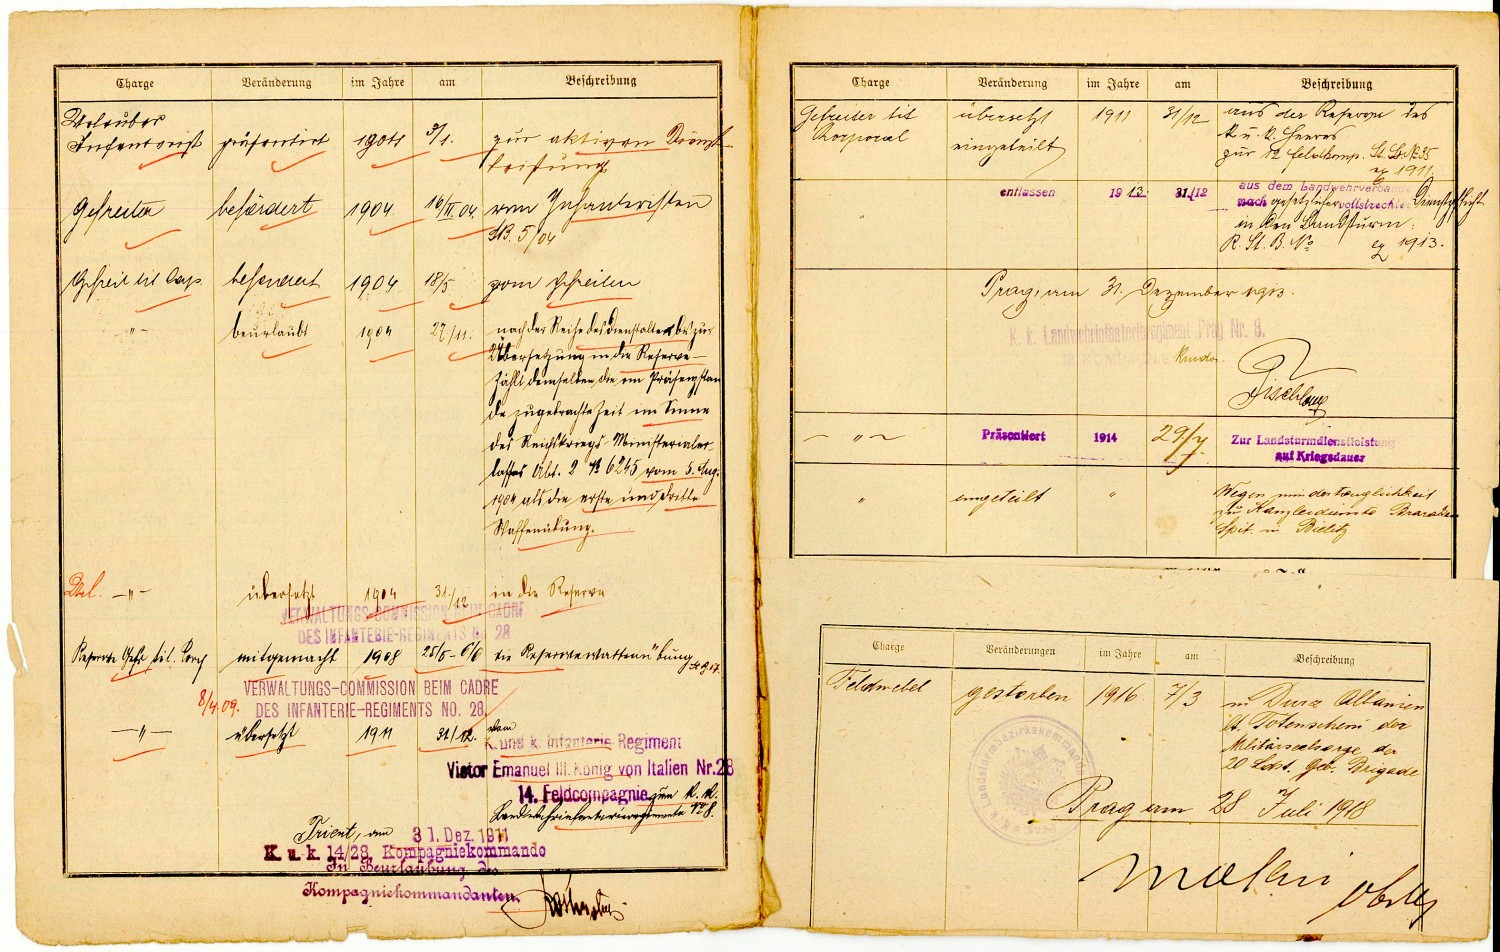 Charge Veränderung im Jahre am Beschreibung
Urlauber
Infanterist präsentiert 1904 3/1. zur aktiven Dienst-
leistung
Gefreiter befördert 1904. 16/II. 04. vom Infanteristen
SB. 5/04
Gefreit tit Corp. befördert 1904 18/5 vom Gefreiten
-"- beurlaubt 1904 27/11. nach der Reihe des Dienstalters bis zur
Übersetzung in die Reserve-
Zählt demselben die im Präsenzstan
de zugebrachte Zeit im Sinne
des Reichskriegs-Ministerialer-
lasses Abt. 2 № 6245 vom 5. Aug.
1904 als die erste und dritte
Waffenübung.
-"- übersetzt 1904 31/12 in die Reserve
VERWALTUNGS-COMMISSION BEIM CADRE
DES INFANTERIE-REGIMENTS No 28
Reserve Gefr. tit. Corp mitgemacht 1908 25/5-6/6 die Reservewaffenübung
8/4.09.
VERWALTUNGS-COMMISSION BEIM CADRE
DES INFANTERIE-REGIMENTS NO. 28.
-"- übersetzt 1911 31/12. vom
K. und k. Infanterie-Regiment
Victor Emanuel III. König von Italien Nr. 28
14. Feldcompagnie zum k. k.
Landwehrinfanterieregimente № 8.
Trient, am 31. Dez. 1911
K. u. k. 14/28. Kompagniekommando
In Beurlaubung des
Kompagniekommandanten.
Charge Veränderung im Jahre am Beschreibung
Gefreiter tit übersetzt 1911 31/12 aus der Reserve des
Korporal eingeteilt k. u. k. Heeres
zur 12 Feldkomp. St. B. № 35
ex 1911.
" entlassen 1913. 31./12 aus dem Landwehrverbande
nach gesetzlicher vollstreckter Dienstpflicht
in den Landsturm.
R. St. B. No ex 1913.
Prag, am 31. Dezember 1913.
K. k. Landwehrinfanterieregiment Prag Nr. 8.
Kmdo.
- " - Präsentiert 1914 29/7 Zur Landsturmdienstleistung
auf Kriegsdauer
" eingeteilt " Wegen mindertauglichkeit
zu Kanzleidienste Baracken
Spit. in Bielitz
Charge Veränderungen im Jahre am Beschreibung
Feldwebel gestorben 1916. 7/3 in Durz Albanien
lt. Totenschein der
Militärseelsorge der
20 Ldst. Geb. Brigade
k. k. Landsturmbezirkskommando
Prag am 28 Juli 1918